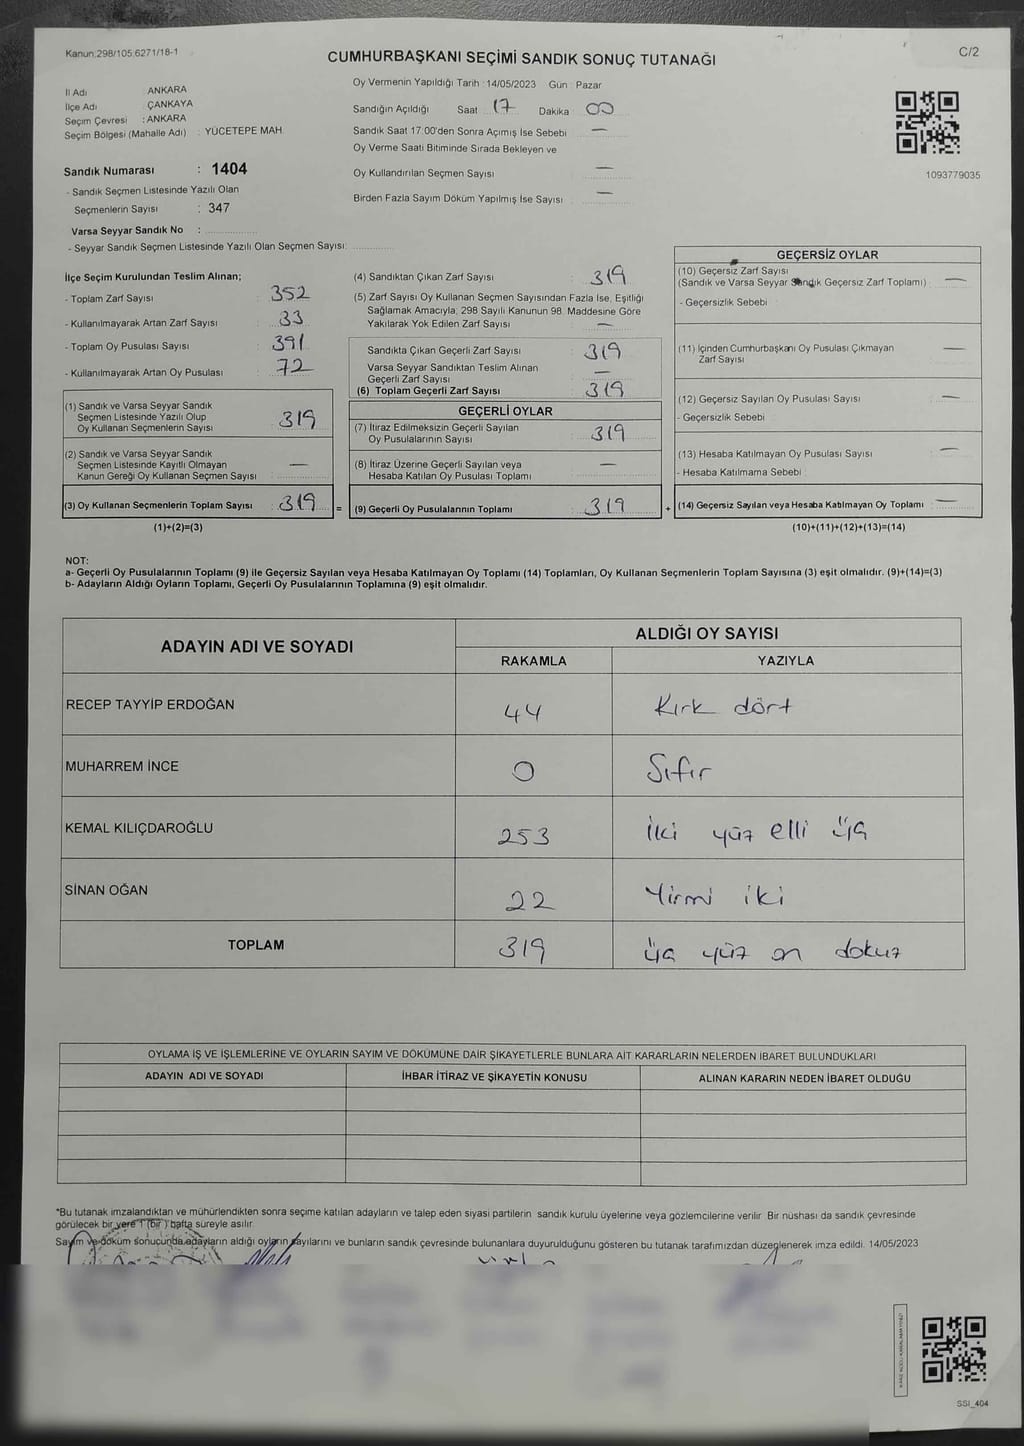 Kanun:298/105,6271/18-1
CUMHURBAŞKANI SEÇİMİ SANDIK SONUÇ TUTANAĞI
C/2
İl Adı ANKARA
İlçe Adı ÇANKAYA
Seçim Çevresi : ANKARA
Seçim Bölgesi (Mahalle Adı) : YÜCETEPE MAH.
Sandık Numarası : 1404
- Sandık Seçmen Listesinde Yazılı Olan
Seçmenlerin Sayısı : 347
Varsa Seyyar Sandık No :
- Seyyar Sandık Seçmen Listesinde Yazılı Olan Seçmen Sayısı:
Oy Vermenin Yapıldığı Tarih : 14/05/2023 Gün : Pazar
Sandığın Açıldığı Saat 17 Dakika 00
Sandık Saat 17:00'den Sonra Açımış İse Sebebi —
Oy Verme Saati Bitiminde Sırada Bekleyen ve
Oy Kullandırılan Seçmen Sayısı —
Birden Fazla Sayım Döküm Yapılmış İse Sayısı —
1093779035
İlçe Seçim Kurulundan Teslim Alınan;
- Toplam Zarf Sayısı : 352
- Kullanılmayarak Artan Zarf Sayısı : 33
- Toplam Oy Pusulası Sayısı : 391
- Kullanılmayarak Artan Oy Pusulası : 72
(1) Sandık ve Varsa Seyyar Sandık
Seçmen Listesinde Yazılı Olup
Oy Kullanan Seçmenlerin Sayısı : 319
(2) Sandık ve Varsa Seyyar Sandık
Seçmen Listesinde Kayıtlı Olmayan
Kanun Gereği Oy Kullanan Seçmen Sayısı : —
(3) Oy Kullanan Seçmenlerin Toplam Sayısı : 319 =
(1)+(2)=(3)
(4) Sandıktan Çıkan Zarf Sayısı : 319
(5) Zarf Sayısı Oy Kullanan Seçmen Sayısından Fazla İse, Eşitliği
Sağlamak Amacıyla; 298 Sayılı Kanunun 98. Maddesine Göre
Yakılarak Yok Edilen Zarf Sayısı : —
Sandıkta Çıkan Geçerli Zarf Sayısı : 319
Varsa Seyyar Sandıktan Teslim Alınan
Geçerli Zarf Sayısı : —
(6) Toplam Geçerli Zarf Sayısı : 319
GEÇERLİ OYLAR
(7) İtiraz Edilmeksizin Geçerli Sayılan
Oy Pusulalarının Sayısı : 319
(8) İtiraz Üzerine Geçerli Sayılan veya
Hesaba Katılan Oy Pusulası Toplamı : —
(9) Geçerli Oy Pusulalarının Toplamı : 319 +
GEÇERSİZ OYLAR
(10) Geçersiz Zarf Sayısı
(Sandık ve Varsa Seyyar Sandık Geçersiz Zarf Toplamı) : —
- Geçersizlik Sebebi :
(11) İçinden Cumhurbaşkanı Oy Pusulası Çıkmayan
Zarf Sayısı —
(12) Geçersiz Sayılan Oy Pusulası Sayısı —
- Geçersizlik Sebebi :
(13) Hesaba Katılmayan Oy Pusulası Sayısı —
- Hesaba Katılmama Sebebi :
(14) Geçersiz Sayılan veya Hesaba Katılmayan Oy Toplamı : —
(10)+(11)+(12)+(13)=(14)
NOT:
a- Geçerli Oy Pusulalarının Toplamı (9) ile Geçersiz Sayılan veya Hesaba Katılmayan Oy Toplamı (14) Toplamları, Oy Kullanan Seçmenlerin Toplam Sayısına (3) eşit olmalıdır. (9)+(14)=(3)
b- Adayların Aldığı Oyların Toplamı, Geçerli Oy Pusulalarının Toplamına (9) eşit olmalıdır.
ADAYIN ADI VE SOYADI
ALDIĞI OY SAYISI
RAKAMLA YAZIYLA
RECEP TAYYİP ERDOĞAN 44 Kırk dört
MUHARREM İNCE 0 Sıfır
KEMAL KILIÇDAROĞLU 253 iki yüz elli üç
SİNAN OĞAN 22 Yirmi iki
TOPLAM 319 üç yüz on dokuz
OYLAMA İŞ VE İŞLEMLERİNE VE OYLARIN SAYIM VE DÖKÜMÜNE DAİR ŞİKAYETLERLE BUNLARA AİT KARARLARIN NELERDEN İBARET BULUNDUKLARI
ADAYIN ADI VE SOYADI İHBAR İTİRAZ VE ŞİKAYETİN KONUSU ALINAN KARARIN NEDEN İBARET OLDUĞU
*Bu tutanak imzalandıktan ve mühürlendikten sonra seçime katılan adayların ve talep eden siyasi partilerin sandık kurulu üyelerine veya gözlemcilerine verilir. Bir nüshası da sandık çevresinde
görülecek bir yere 1 (bir) hafta süreyle asılır.
Sayım ve döküm sonucunda adayların aldığı oyların sayılarını ve bunların sandık çevresinde bulunanlara duyurulduğunu gösteren bu tutanak tarafımızdan düzenlenerek imza edildi. 14/05/2023
SSI_404